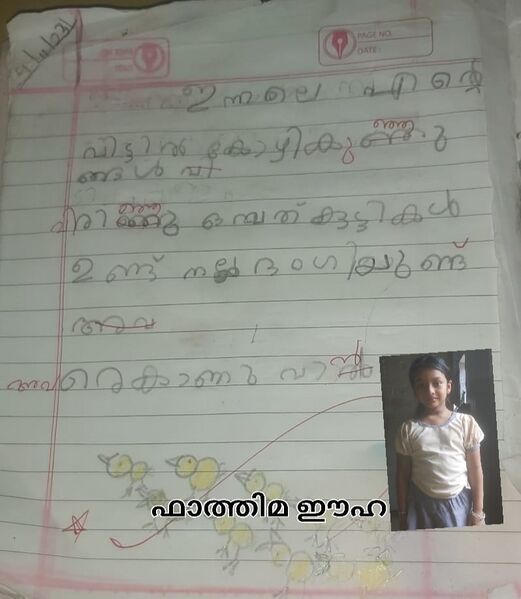 5/11/23
PAGE NO.
DATE:
ഇന്നലെ എന്റെ
വീട്ടിൽ കോഴികുഞ്ഞു
ങ്ങൾ വി
വിരിഞ്ഞു ഒമ്പത് കുട്ടികൾ
ഉണ്ട് നല്ല ഭംഗിയുണ്ട്
അവ
അവരെകാണു വാൻ
ഫാത്തിമ ഈഹ